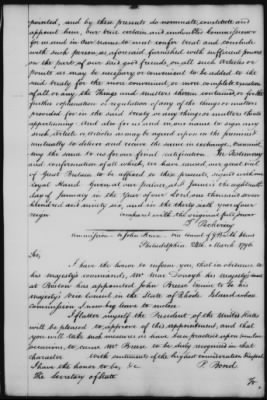 pointed, and by these presents do nominate, constitute and
appoint him, our true, certain and undoubted Commissioner
for us and in our name, to meet confer treat and conclude
with such person or persons furnished with sufficient powers
on the part of our said good friends, on all such Articles or
points as may be necessary or convenient to be added to the
said treaty for the more convenient or more complete execution
of all or any, the things and matters therein contained, or for the
further explanation or regulation of any of the things or matters
provided for in the said treaty or any things or matters thereto
appertaining. And also for us and in our name to sign any
such Article or Articles as may be agreed upon in the premises
mutually to deliver and receive the same in exchange,
any the same to us for our final ratification. In testimony
and confirmation of all which, we have caused our great seal
of Great Britain to be affixed to these presents, signed with our
royal Hand. Given at our palace at St James's the eighteenth
day of January in the Year of our Lord, one thousand seven
hundred and ninety six, and in the thirty sixth year of our
reign Compared with the original full power
T. Pickering
Commission to John
Philadelphia March 1796
Sir,
I have the honor to inform you, that in obedience to
his Majesty's commands, Mr Mac Donogh his Majesty's Consul
at Boston has appointed John Breese to be his
Majesty's Vice Consul in the State of Rhode Island whose
commission I now beg leave to enclose.
I flatter myself the President of the United States
will be pleased to approve of this appointment, and that
you will take such measures as have been practised upon similar
occasions, to cause Mr Breese to be duly recognized in that
character With sentiments of the highest consideration & respect
I have the honor to be, &c P. Bond
The Secretary of State
To